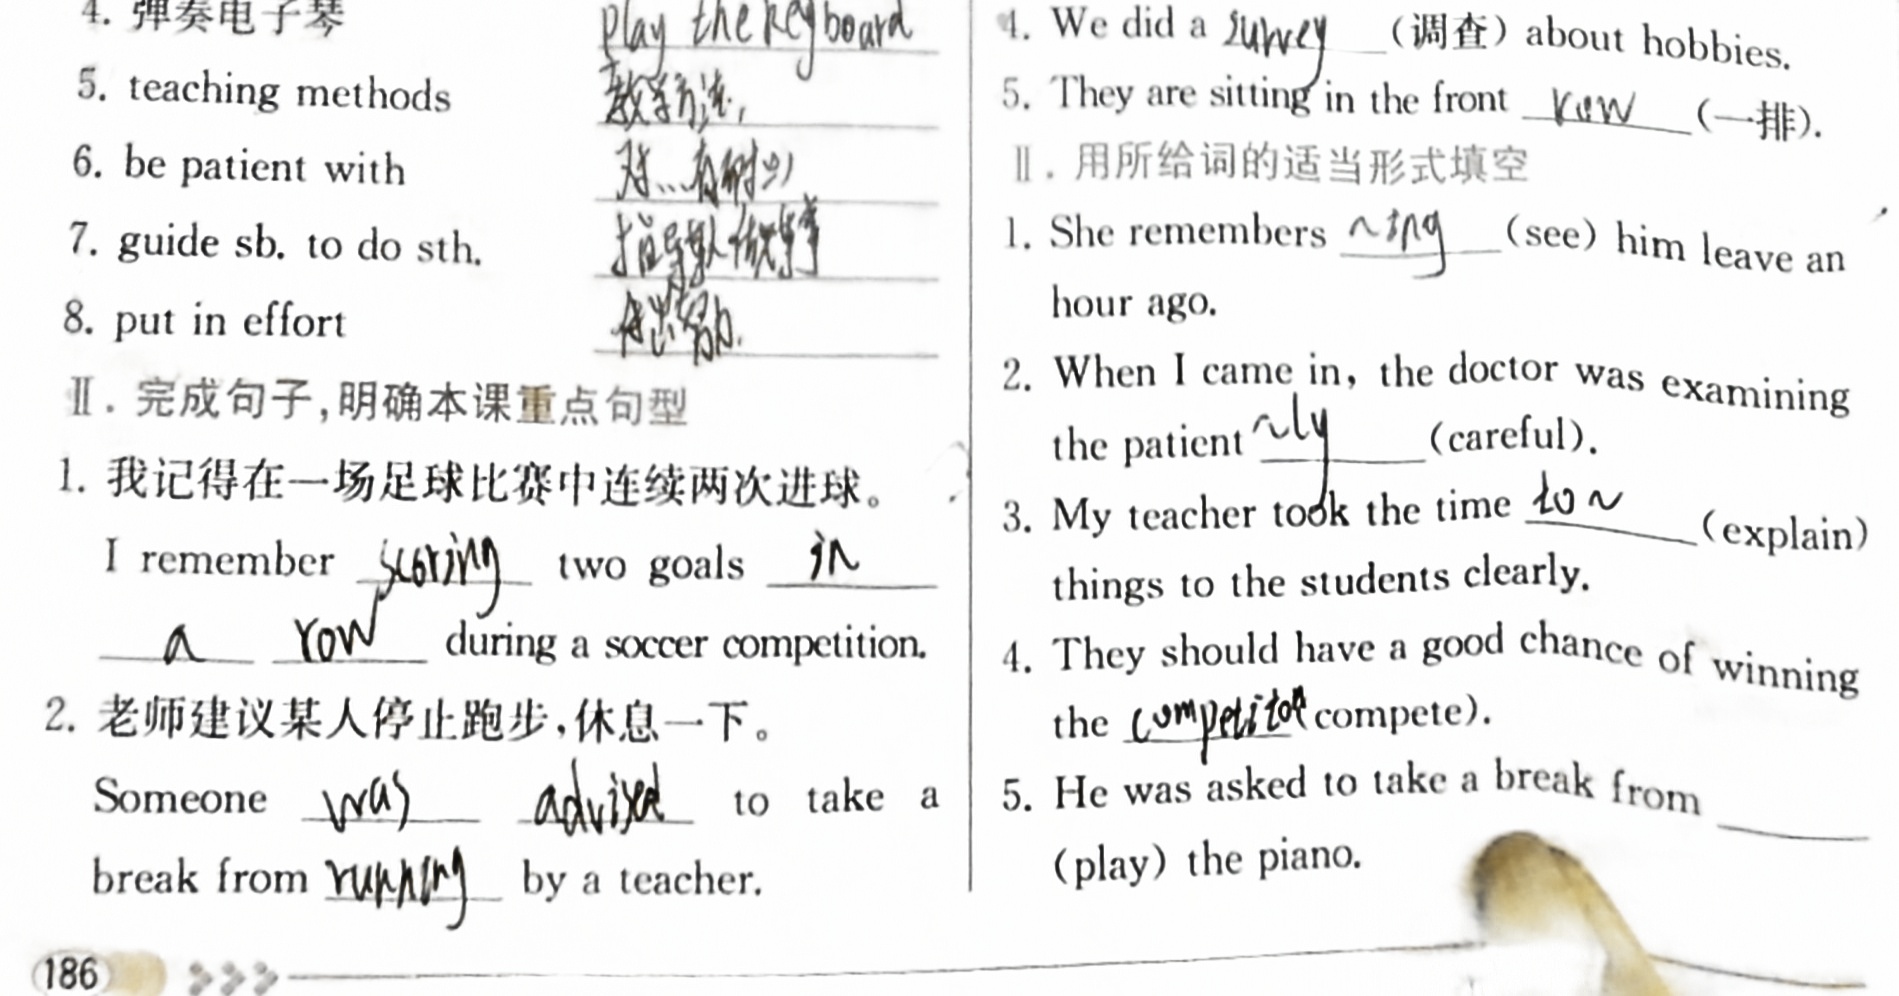 4. 弹奏电子琴 play the keyboard
5. teaching methods 教学方法,
6. be patient with 对...有耐心
7. guide sb. to do sth. 指导某人做某事
8. put in effort 付出努力.
Ⅱ. 完成句子,明确本课重点句型
1. 我记得在一场足球比赛中连续两次进球。
I remember scoring two goals in
a row during a soccer competition.
2. 老师建议某人停止跑步,休息一下。
Someone was advised to take a
break from running by a teacher.
186
4. We did a survey (调查) about hobbies.
5. They are sitting in the front row (一排).
Ⅱ. 用所给词的适当形式填空
1. She remembers ~ing (see) him leave an
hour ago.
2. When I came in, the doctor was examining
the patient ~ly (careful).
3. My teacher took the time to ~ (explain)
things to the students clearly.
4. They should have a good chance of winning
the compete).
5. He was asked to take a break from ____
(play) the piano.